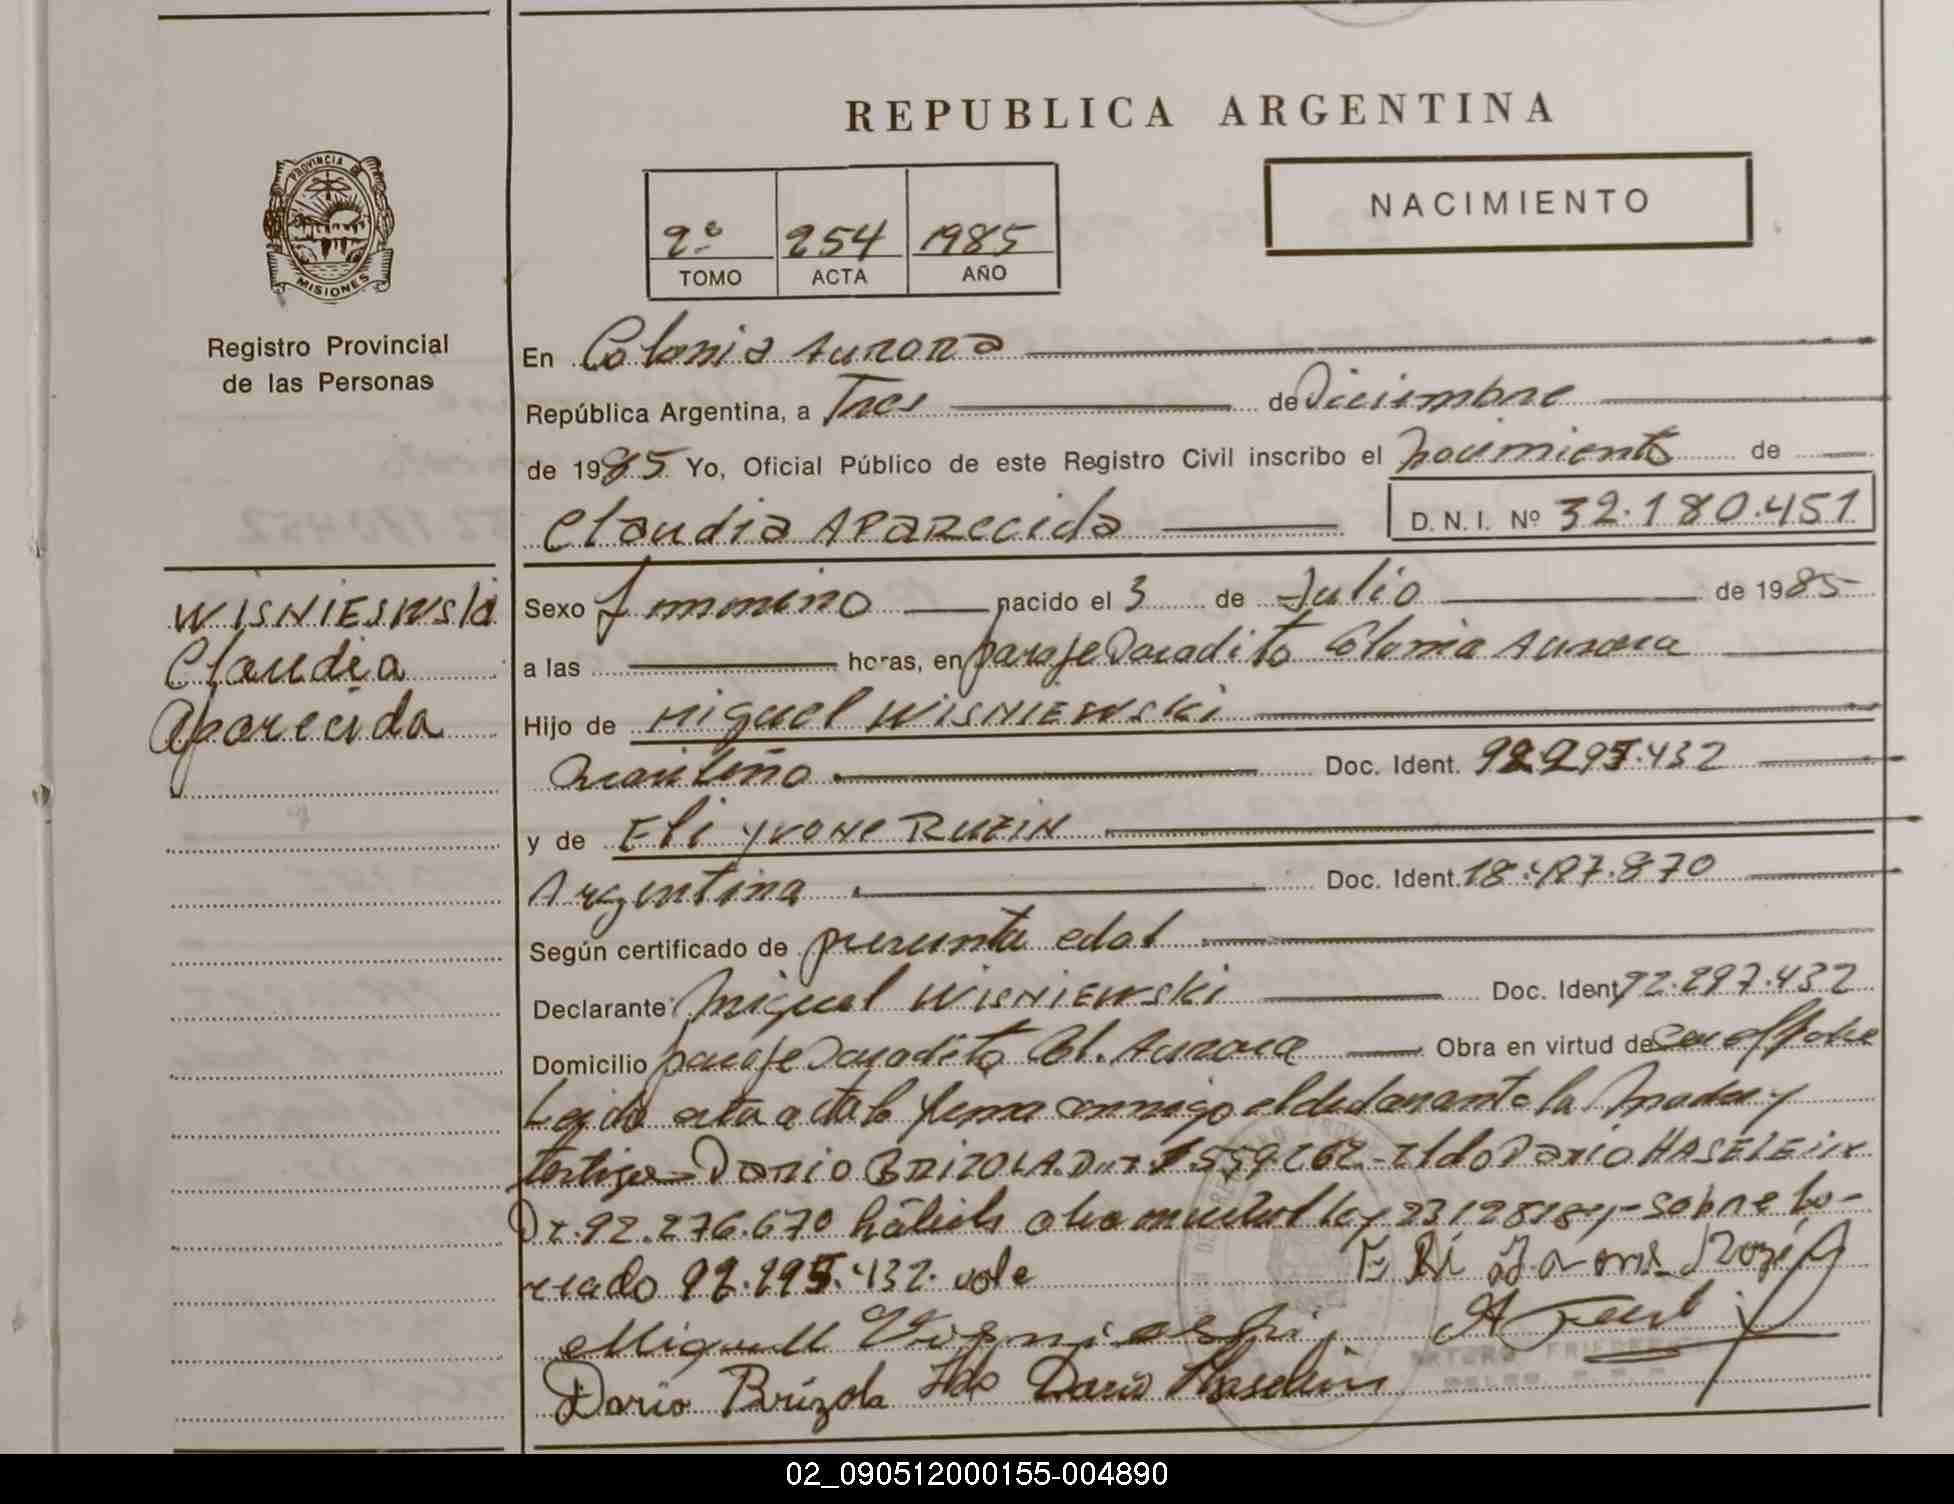 REPUBLICA ARGENTINA
PROVINCIA DE
MISIONES
Registro Provincial
de las Personas
NACIMIENTO
2º 254 1985
TOMO ACTA AÑO
En Colonia Aurora
República Argentina, a Tres de Diciembre
de 1985 Yo, Oficial Público de este Registro Civil inscribo el nacimiento de
Claudia Aparecida D. N. I. Nº 32.180.451
WISNIESWSki
Claudia
Aparecida
Sexo femenino nacido el 3 de Julio de 1985
a las horas, en paraje Doradito Colonia Aurora
Hijo de Miguel WISNIEWSKi
brasileño Doc. Ident. 92.295.432
y de Eli YVONe RUZIN
Argentina Doc. Ident. 18.497.870
Según certificado de presunta edad
Declarante Miguel WISNIEWSKi Doc. Ident. 92.297.432
Domicilio paraje Doradito Col. Aurora Obra en virtud de
Leida esta acta la firma conmigo el declarante la Madre y
testigos Dario BRIZOLA D.I. 559262 - Ildo Dario HASELEIN
DI. 92.276.670 hábiles ley 23128/84 - sobre bo-
rrado 92.295.432. vale
Miguell
Dario Brizola Ildo Dario Haselein
ARTURO FRIED
02_090512000155-004890